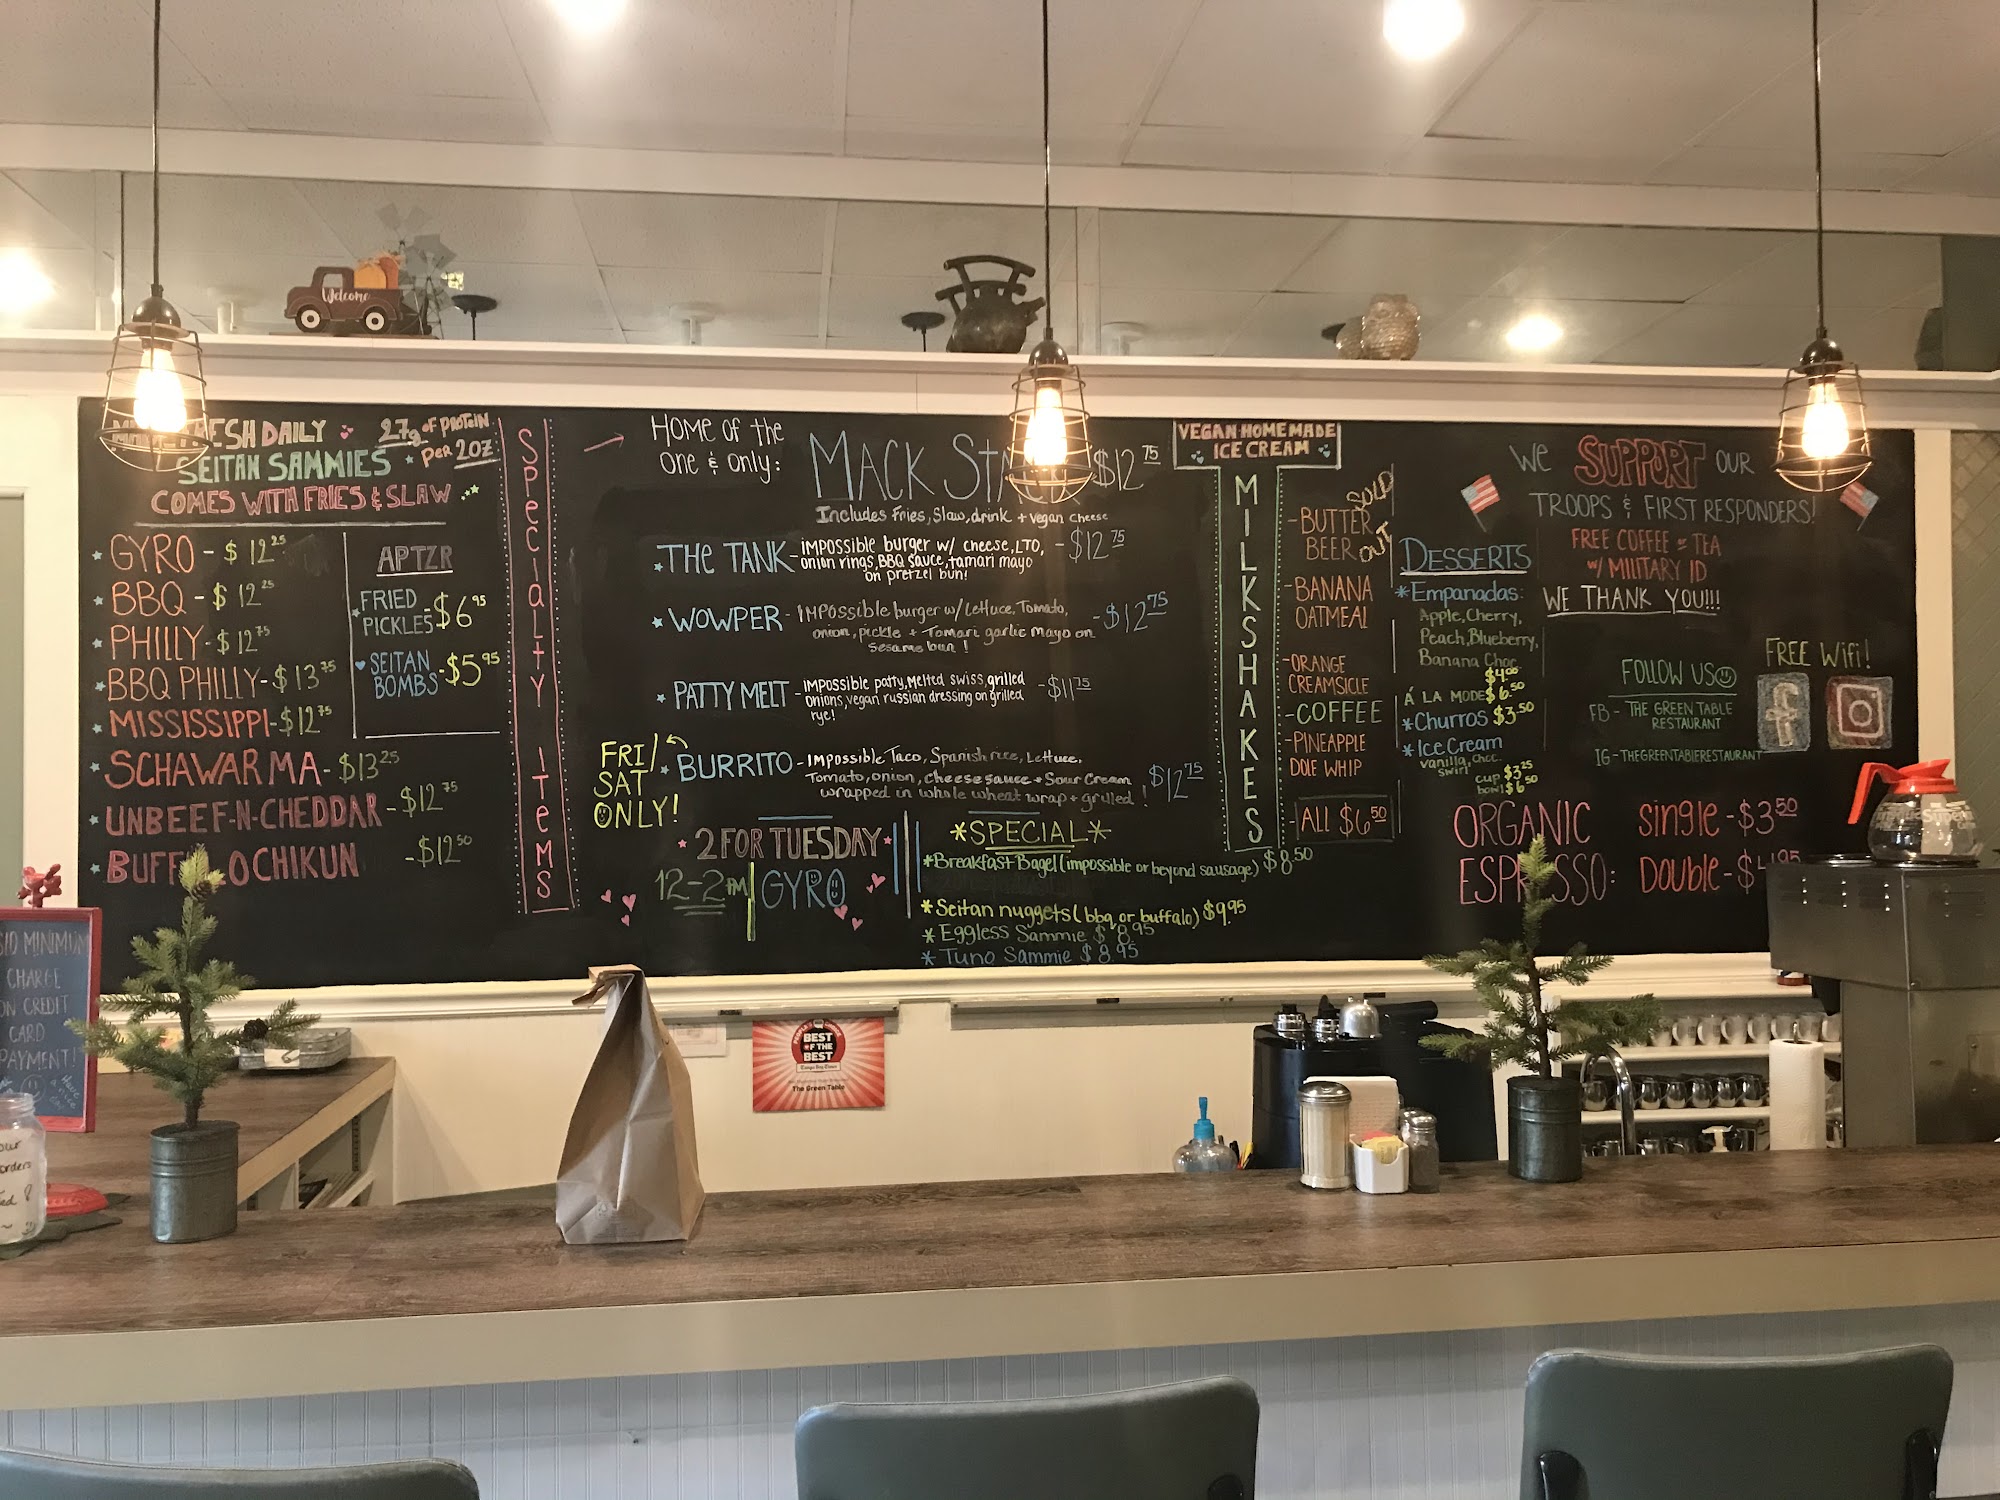 Welcome
FRESH DAILY
27g OF PROTEIN
PER 2OZ
SEITAN SAMMIES
COMES WITH FRIES & SLAW
GYRO - $12.25
BBQ - $12.25
PHILLY - $12.75
BBQ PHILLY - $13.75
MISSISSIPPI - $12.75
SCHAWARMA - $13.25
UNBEEF-N-CHEDDAR - $12.75
BUFFALO CHIKUN - $12.50
APTZR
FRIED
PICKLES - $6.95
SEITAN
BOMBS - $5.95
SPECIALTY ITEMS
HOME OF THE
ONE & ONLY:
MACK $12.75
Includes Fries, Slaw, drink + vegan cheese
THE TANK - IMPOSSIBLE burger w/ cheese, LTO, - $12.75
onion rings, BBQ sauce, tamari mayo
on pretzel bun!
WOWPER - IMPOSSIBLE burger w/ Lettuce, Tomato, - $12.75
onion, pickle + Tamari garlic mayo on
sesame bun!
PATTY MELT - IMPOSSIBLE patty, melted swiss, grilled - $11.75
onions, vegan russian dressing on grilled
rye!
FRI/
SAT
ONLY!
BURRITO - IMPOSSIBLE Taco, Spanish rice, Lettuce,
Tomato, onion, cheese sauce + Sour Cream
wrapped in whole wheat wrap + grilled! $12.75
2 FOR TUESDAY
12-2PM GYRO
*SPECIAL*
*Breakfast Bagel (impossible or beyond sausage) $8.50
*Seitan nuggets (bbq or buffalo) $9.95
*Eggless Sammie $8.95
*Tuno Sammie $8.95
VEGAN HOMEMADE
ICE CREAM
MILKSHAKES
- BUTTER
BEER
SOLD
OUT
- BANANA
OATMEAL
- ORANGE
CREAMSICLE
- COFFEE
- PINEAPPLE
DOLE WHIP
- ALL $6.50
DESSERTS
*Empanadas:
Apple, Cherry,
Peach, Blueberry,
Banana Choc
$4.00
Á LA MODE $6.50
*Churros $3.50
*Ice Cream
vanilla, choc
swirl
cup $3.25
bowl $6.50
WE SUPPORT OUR
TROOPS & FIRST RESPONDERS!
FREE COFFEE or TEA
W/ MILITARY ID
WE THANK YOU!!!
FOLLOW US
FB - THE GREEN TABLE
RESTAURANT
IG - THEGREENTABLERESTAURANT
FREE WiFi!
f
ORGANIC
ESPRESSO:
Single - $3.50
Double - $4.95
$10 MINIMUM
CHARGE
ON CREDIT
CARD
PAYMENT!
Have
a nice
day
BEST
OF THE
BEST
Tampa Bay Times
The Green Table